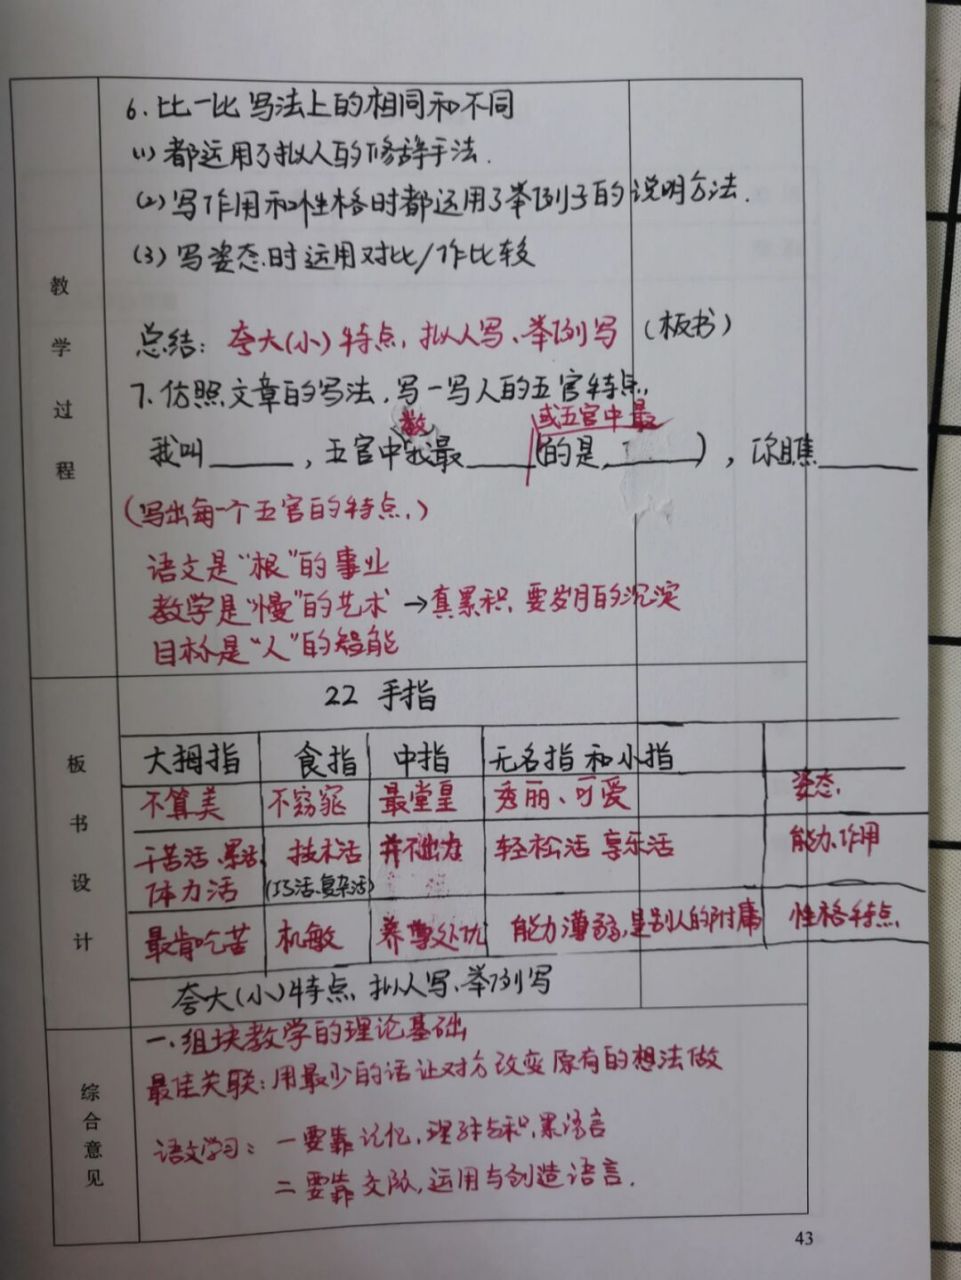 教学过程
6.比一比写法上的相同和不同
(1)都运用了拟人的修辞手法.
(2)写作用和性格时都运用了举例子的说明方法.
(3)写姿态时运用对比/作比较
总结: 夸大(小)特点,拟人写、举例写 (板书)
7.仿照文章的写法,写一写人的五官特点,
数 或五官中最
我叫____,五官中我最____(的是____),你瞧____
(写出每一个五官的特点,)
语文是“根”的事业
教学是“慢”的艺术→真累积,要岁月的沉淀
目标是“人”的智能
板书设计
22 手指
大拇指 食指 中指 无名指和小指
不算美 不窈窕 最堂皇 秀丽、可爱 姿态,
干苦活、累活, 技术活 并不出力 轻松活 享乐活 能力、作用
体力活 (巧活、复杂活)
最肯吃苦 机敏 养尊处优 能力薄弱,是别人的附庸 性格特点
夸大(小)特点,拟人写、举例写
综合意见
一、组块教学的理论基础
最佳关联:用最少的话让对方改变原有的想法做
语文学习: 一要靠记忆,理解与积累语言
二要靠交际,运用与创造语言.
43